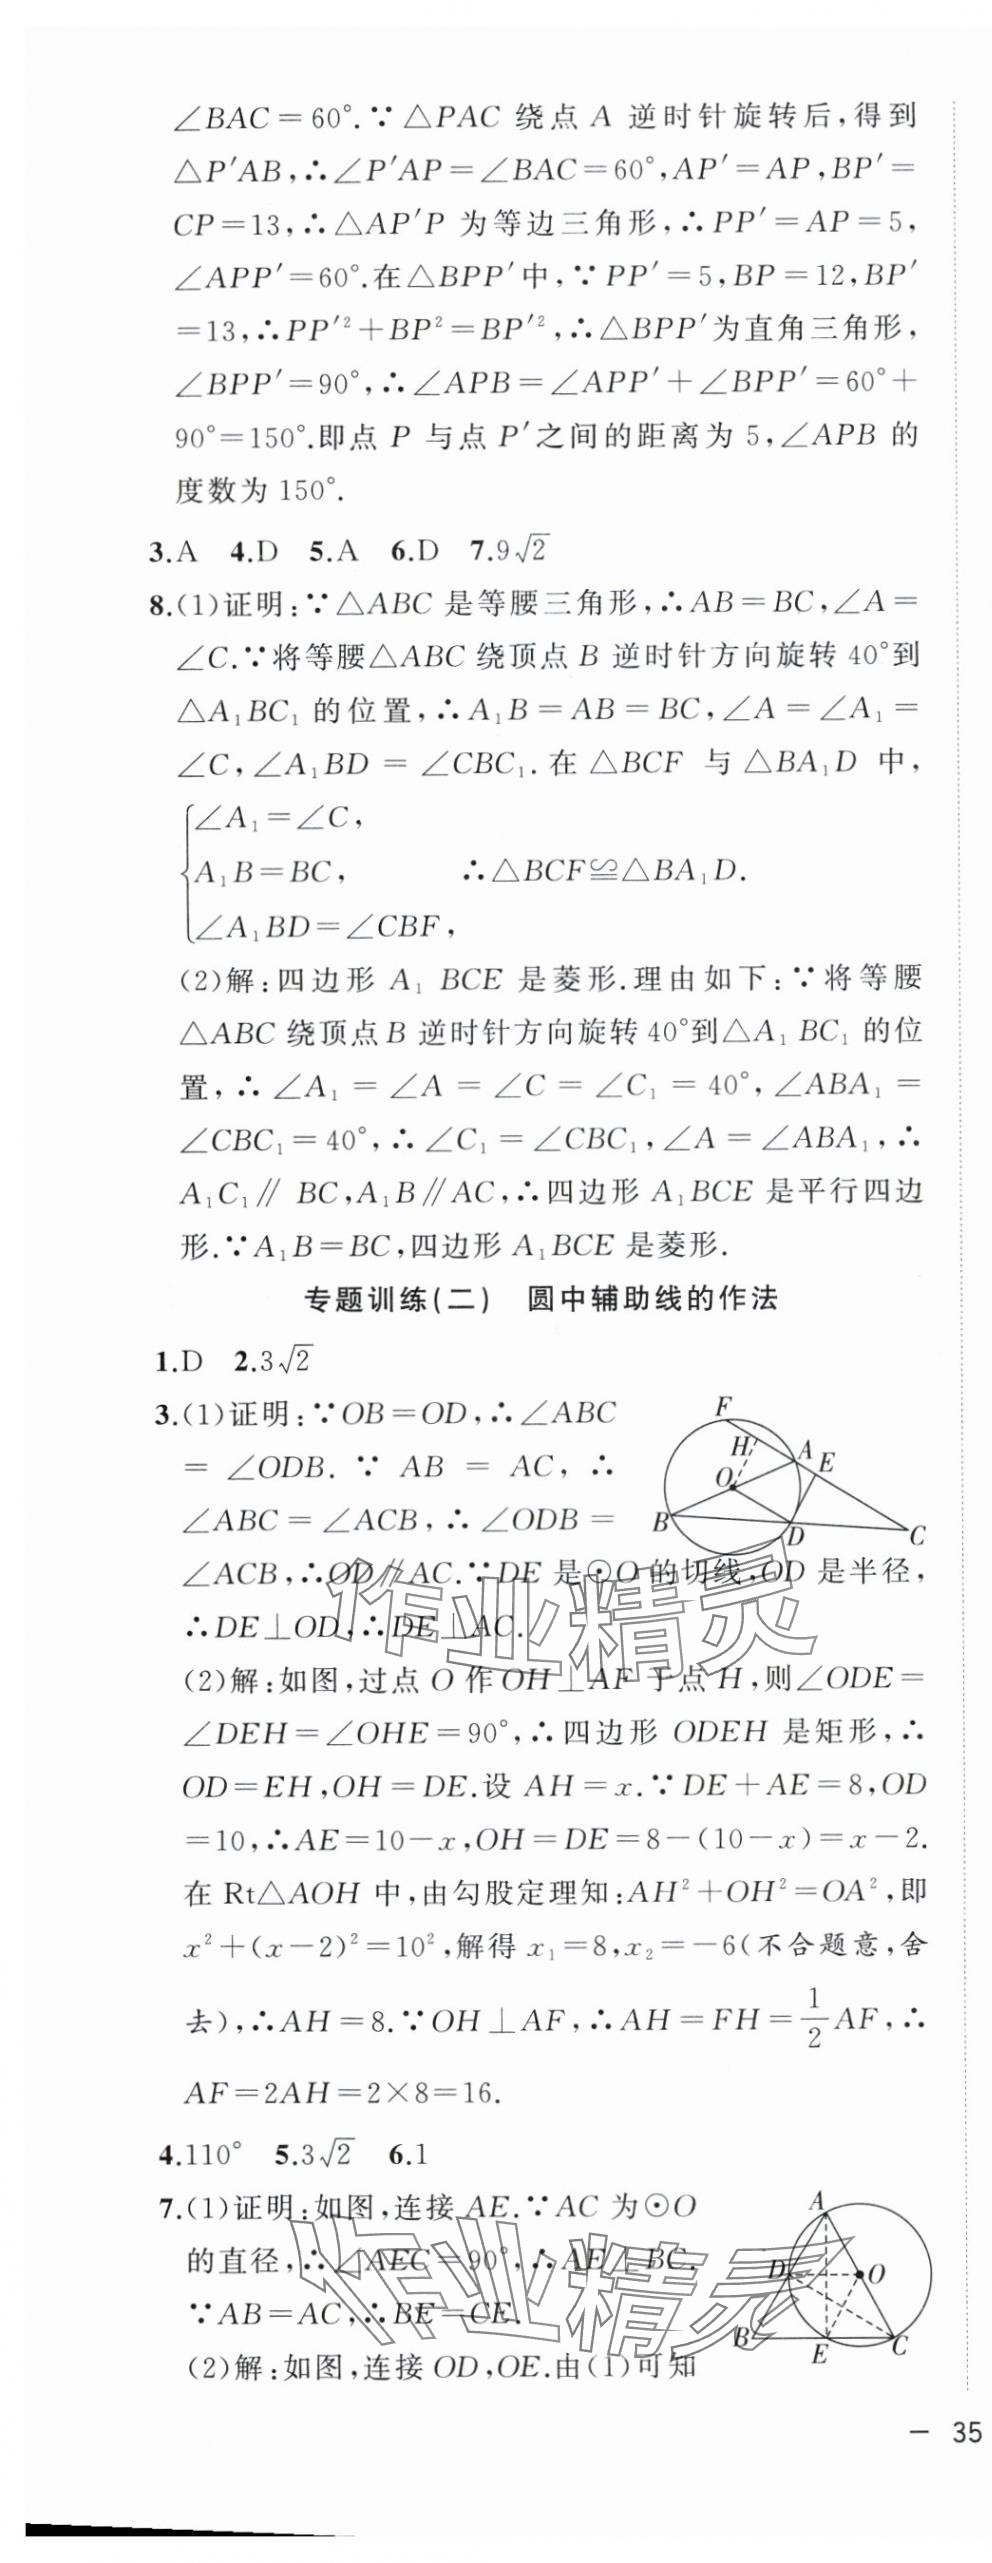 ∠BAC=60°.∵△PAC 绕点 A 逆时针旋转后,得到
△P′AB,∴∠P′AP=∠BAC=60°,AP′=AP,BP′=
CP=13,∴△AP′P 为等边三角形,∴PP′=AP=5,
∠APP′=60°.在△BPP′中,∵PP′=5,BP=12,BP′
=13,∴PP′²+BP²=BP′²,∴△BPP′为直角三角形,
∠BPP′=90°,∴∠APB=∠APP′+∠BPP′=60°+
90°=150°.即点 P 与点 P′之间的距离为 5,∠APB 的
度数为 150°.
3.A 4.D 5.A 6.D 7.9√2
8.(1)证明:∵△ABC 是等腰三角形,∴AB=BC,∠A=
∠C.∵将等腰△ABC 绕顶点 B 逆时针方向旋转 40°到
△A₁BC₁ 的位置,∴A₁B=AB=BC,∠A=∠A₁=
∠C,∠A₁BD=∠CBC₁.在△BCF 与△BA₁D 中,
∠A₁=∠C,
A₁B=BC, ∴△BCF≌△BA₁D.
∠A₁BD=∠CBF,
(2)解:四边形 A₁BCE 是菱形.理由如下:∵将等腰
△ABC 绕顶点 B 逆时针方向旋转 40°到△A₁BC₁ 的位
置,∴∠A₁=∠A=∠C=∠C₁=40°,∠ABA₁=
∠CBC₁=40°,∴∠C₁=∠CBC₁,∠A=∠ABA₁,∴
A₁C₁∥BC,A₁B∥AC,∴四边形 A₁BCE 是平行四边
形.∵A₁B=BC,四边形 A₁BCE 是菱形.
专题训练(二) 圆中辅助线的作法
1.D 2.3√2
3.(1)证明:∵OB=OD,∴∠ABC
=∠ODB.∵AB=AC,∴
∠ABC=∠ACB,∴∠ODB=
∠ACB,∴OD∥AC.∵DE 是⊙O 的切线,OD 是半径,
∴DE⊥OD,∴DE⊥AC.
F
H
A
E
O
B
D
C
(2)解:如图,过点 O 作 OH⊥AF 于点 H,则∠ODE=
∠DEH=∠OHE=90°,∴四边形 ODEH 是矩形,∴
OD=EH,OH=DE.设 AH=x.∵DE+AE=8,OD
=10,∴AE=10-x,OH=DE=8-(10-x)=x-2.
在 Rt△AOH 中,由勾股定理知:AH²+OH²=OA²,即
x²+(x-2)²=10²,解得 x₁=8,x₂=-6(不合题意,舍
去),∴AH=8.∵OH⊥AF,∴AH=FH=1/2AF,∴
AF=2AH=2×8=16.
4.110° 5.3√2 6.1
7.(1)证明:如图,连接 AE.∵AC 为⊙O
的直径,∴∠AEC=90°,∴AE⊥BC.
∵AB=AC,∴BE=CE.
(2)解:如图,连接 OD,OE.由(1)可知
A
D
O
B
E
C
作业精灵
作业精灵
— 35